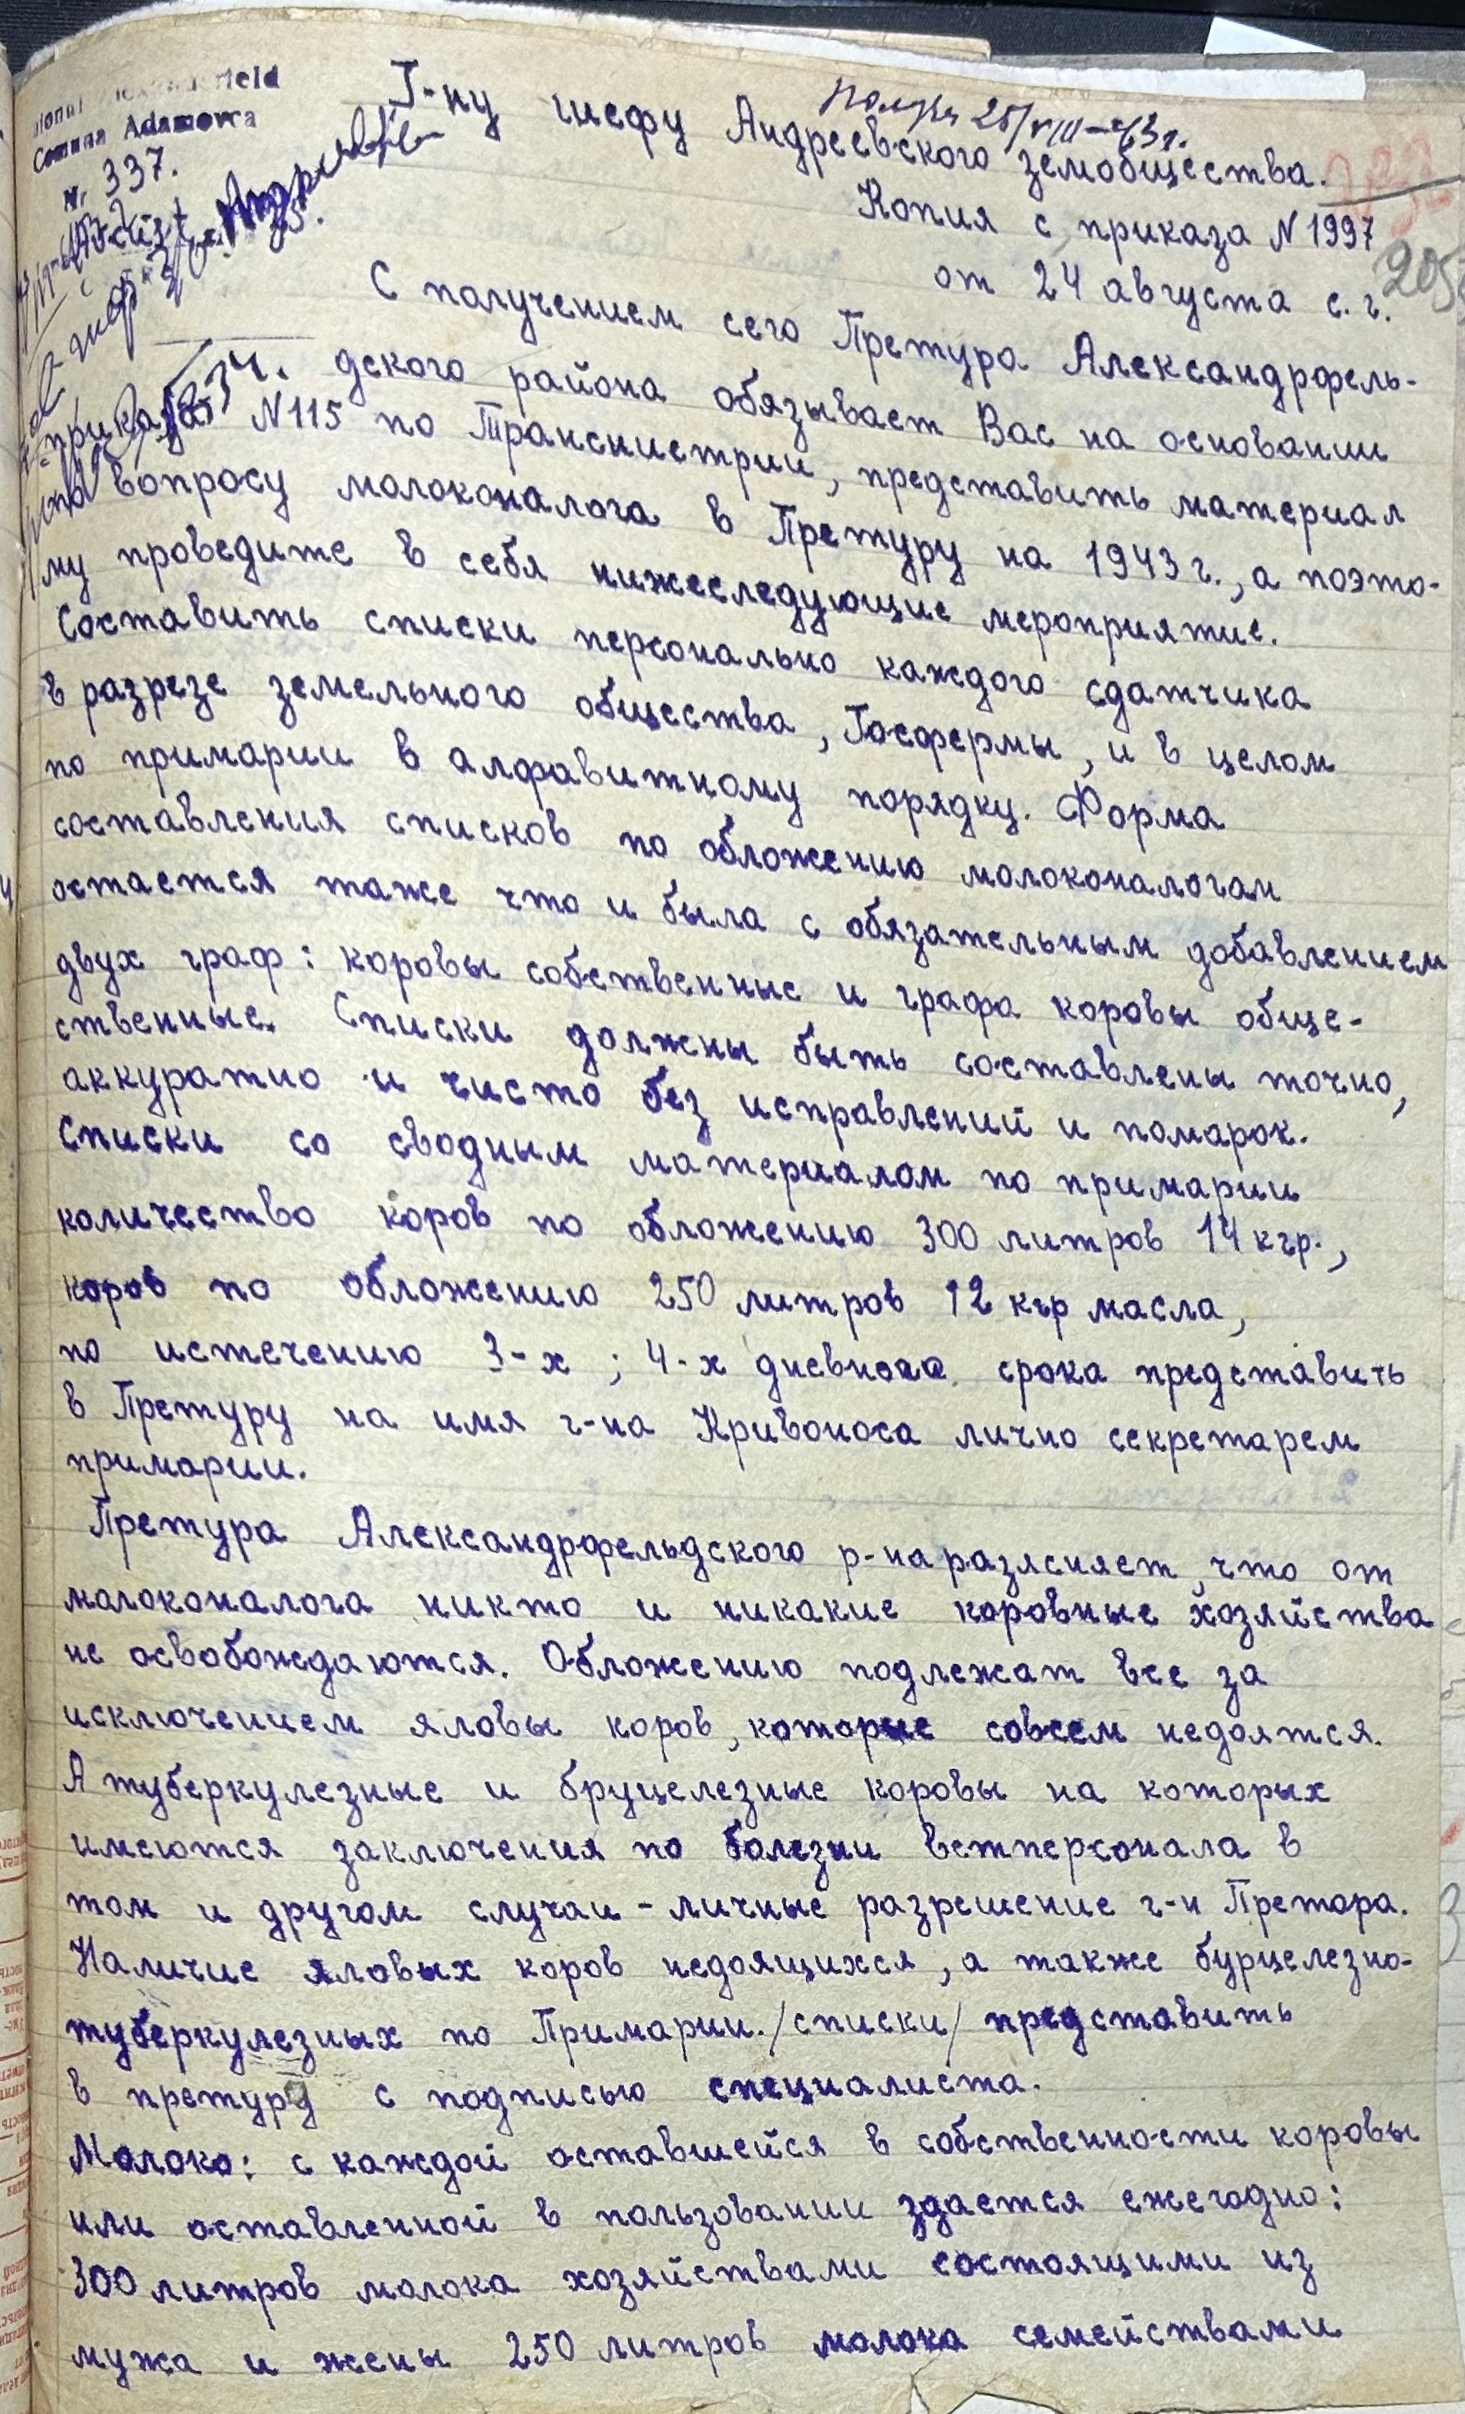 Comuna Adamovca
Nr 337.
Г-ну шефу Андреевского земобщества.
25/VIII-43 г.
Копия с приказа N 1997
от 24 августа с. г.
205
С получением сего Претура Александрфель-
дского района обязывает Вас на основании
приказа N 115 по Транснистрии, представить материал
по вопросу молоконалога в Претуру на 1943 г., а поэто-
му проведите в себя нижеследующие мероприятие.
Составить списки персонально каждого сдатчика
в разрезе земельного общества, Госфермы, и в целом
по примарии в алфавитному порядку. Форма
составления списков по обложению молоконалогам
остается таже что и была с обязательным добавлением
двух граф: коровы собственные и графа коровы обще-
ственные. Списки должны быть составлены точно,
аккуратно и чисто без исправлений и помарок.
Списки со сводным материалом по примарии
количество коров по обложению 300 литров 14 кгр.,
коров по обложению 250 литров 12 кгр масла,
по истечению 3-х ; 4-х дневного срока представить
в Претуру на имя г-на Кривоноса лично секретарем
примарии.
Претура Александрфельдского р-на разясняет, что от
молоконалога никто и никакие коровные хозяйства
не освобождаются. Обложению подлежат все за
исключением яловы коров, которые совсем недоятся.
А туберкулезные и бруцелезные коровы на которых
имеются заключения по болезни ветперсонала в
том и другом случаи - личные разрешение г-н Претора.
Наличие яловых коров недоящихся, а также бурцелезно-
туберкулезных по Примарии. /списки/ представить
в претуру с подписью специалиста.
Молоко: с каждой оставшейся в собственности коровы
или оставленной в пользовании здается ежегодно:
300 литров молока хозяйствами состоящими из
мужа и жены 250 литров молока семействами